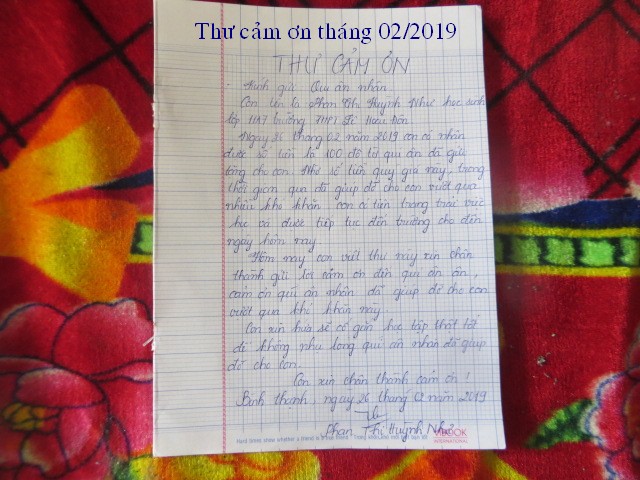 Thư cảm ơn tháng 02/2019
THƯ CẢM ƠN
- Kính gửi Quí ân nhân.
Con tên là Phan Thị Huỳnh Như học sinh
lớp 11A7 trường THPT Lê Hoàu Đôn
Ngày 26 tháng 02 năm 2019 con có nhận
được số tiền là 100 đô từ quí ân đã gửi
tặng cho con. Nhờ số tiền quý giá này, trong
thời gian qua đã giúp đỡ cho con vượt qua
nhiều khó khăn con có tiền trang trải việc
học có được tiếp tục đến trường cho đến
ngày hôm nay.
Hôm nay con viết thư này xin chân
thành gửi lời cảm ơn đến quí ân ân,
cảm ơn quí ân nhân đã giúp đỡ cho con
vượt qua khó khăn này.
Con xin hứa sẽ cố gắn học tập thật tốt
để không phụ lòng quí ân nhân đã giúp
đỡ cho con.
Con xin chân thành cảm ơn !
Bình thạnh, ngày 26 tháng 02 năm 2019
Phan Thị Huỳnh Như
BOOK
INTERNATIONAL